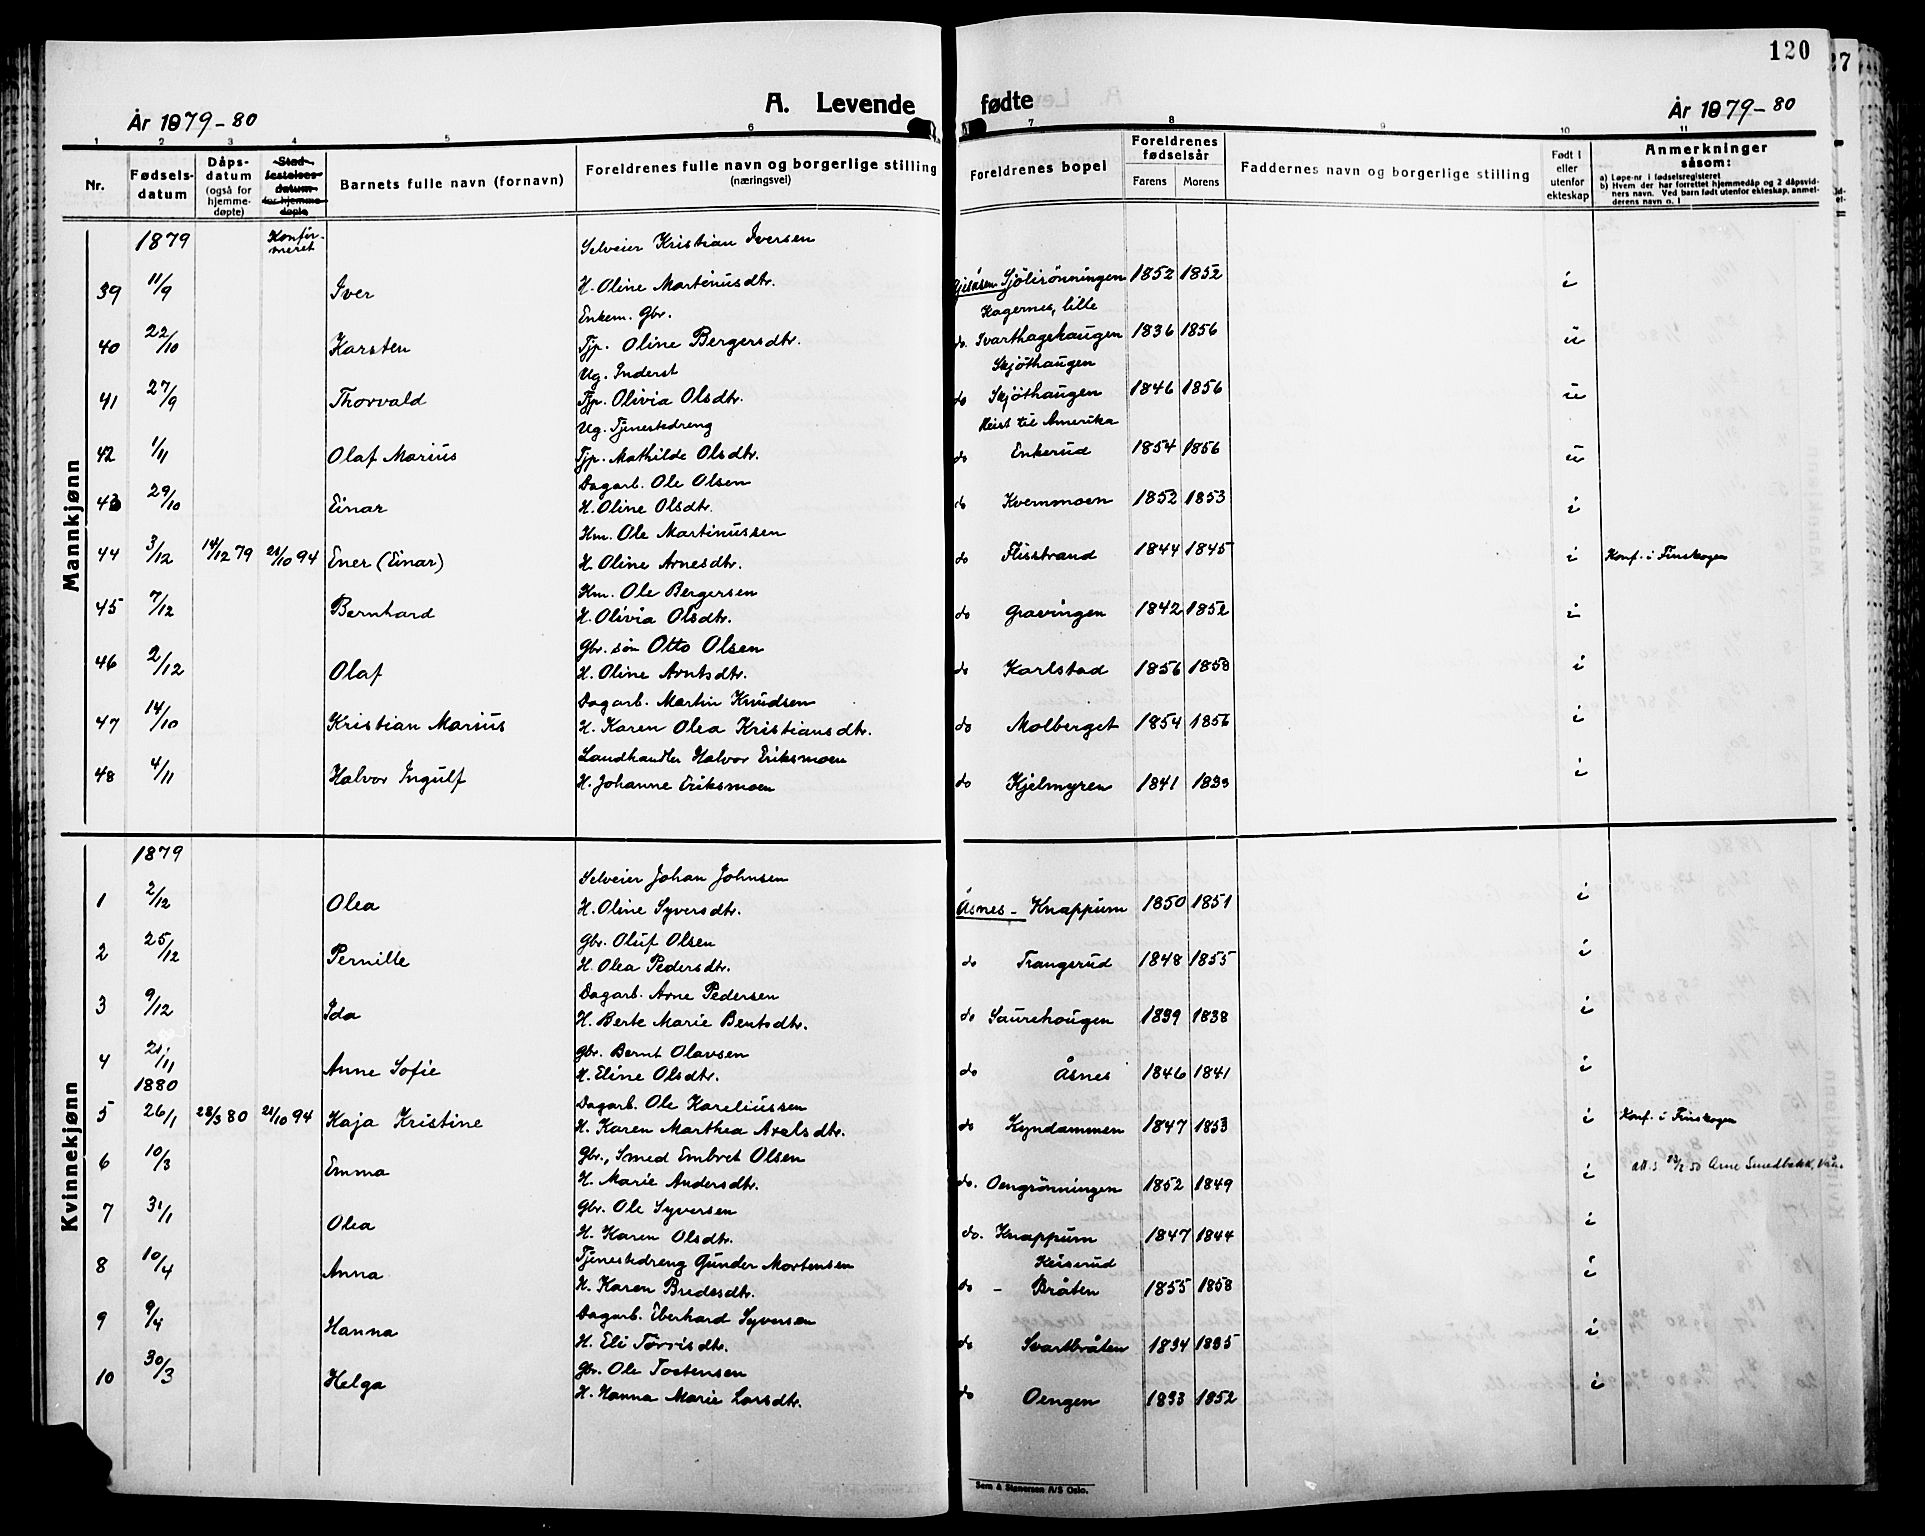 120
A. Levende fødte
År 1879-80
År 1879-80
1 2 3 4 5 6 7 8 9 10 11
Nr. Fødsels-datum Dåps-datum (også for hjemme-døpte) Stad-festelses-datum for hjemme-døpte Barnets fulle navn (fornavn) Foreldrenes fulle navn og borgerlige stilling (næringsvei) Foreldrenes bopel Foreldrenes fødselsår Farens Morens Faddernes navn og borgerlige stilling Født i eller utenfor ekteskap Anmerkninger såsom:
a) Løpe-nr i fødselsregisteret
b) Hvem der har forrettet hjemmedåp og 2 dåpsvidners navn. Ved barn født utenfor ekteskap, anmelderens navn o. l
Mannkjønn
1879 Konfirmeret Selveier Kristian Iversen
39 11/9 Iver H. Oline Martinusdtr. Gjesåsen Sjölisönningen 1852 1852 i
Enkem. Gbr. Hagernes, lille
40 22/10 Karsten Tjp. Oline Bergersdtr. do. Svarthagehaugen 1836 1856 u
Ug. Inderst Skjöthaugen
41 27/9 Thorvald Tjp. Olivia Olsdtr. do Skjöthaugen 1846 1856 u
Ug. Tjenestedreng Reist til Amerika
42 1/11 Olaf Marius Tjp. Mathilde Olsdtr. do Enkerud 1854 1856 u
Dagarb. Ole Olsen
43 29/10 Einar H. Oline Olsdtr. do Kvernmoen 1852 1853 i
Hm. Ole Martinussen
44 3/12 14/12 79 21/10 94 Ener (Einar) H. Oline Arnesdtr. do Flisstrand 1844 1845 i Konf. i Finskogen
Hm. Ole Bergersen
45 7/12 Bernhard H. Olivia Olsdtr. do Gravingen 1842 1852 i
Gbr. søn Otto Olsen
46 2/12 Olaf H. Oline Arntsdtr. do Karlstad 1856 1858 i
Dagarb. Martin Knudsen
47 14/10 Kristian Marius H. Karen Olea Kristiansdtr. do Molberget 1854 1856 i
Landhandler Halvor Eriksmoen
48 4/11 Halvor Ingulf H. Johanne Eriksmoen do Kjelmyren 1841 1833 i
Kvinnekjønn
1879
Selveier Johan Johnsen
1 2/12 Olea H. Oline Syversdtr. Åsnes - Knappum 1850 1851 i
Gbr. Oluf Olsen
2 25/12 Pernille H. Olea Pedersdtr. do Trangsrud 1848 1855 i
Dagarb. Arne Pedersen
3 9/12 Ida H. Berte Marie Bentsdtr. do Saurehougen 1839 1838 i
Gbr. Bernt Olavsen
4 21/11 Anne Sofie H. Eline Olsdtr. do Åsnes 1846 1841 i
1880
Dagarb. Ole Kareliussen
5 26/1 28/3 80 21/10 94 Kaja Kristine H. Karen Marthea Axelsdtr. do Kyndammen 1847 1853 i Konf. i Finskogen
Gbr., Smed Embret Olsen
6 10/3 Emma H. Marie Andersdtr. do. Oengrönningen 1852 1849 i att.s 23/2 50 Arne Smedbakk,
Gbr. Ole Syversen
7 31/1 Olea H. Karen Olsdtr. do. Knappum 1847 1844 i
Tjenestedreng Gunder Mortensen Keiserud
8 10/4 Anna H. Karen Bredesdtr. do - Bråten 1855 1858 i
Dagarb. Eberhard Syversen
9 9/4 Hanna H. Eli Torrisdtr. do Svartbråten 1834 1835 i
Gbr. Ole Tostensen
10 30/3 Helga H. Hanna Marie Larsdtr. do Oengen 1833 1852 i
Sem & Stenersen A/S Oslo.